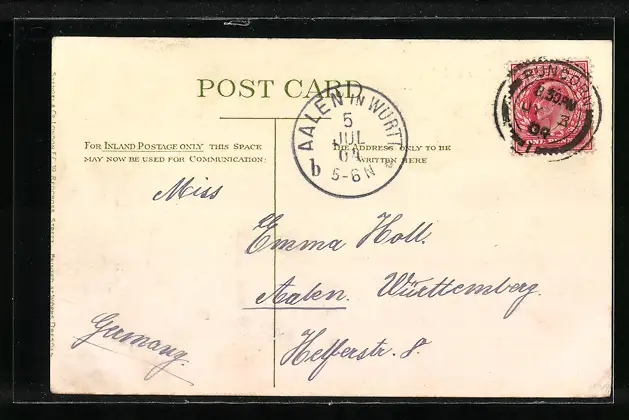 POST CARD
FOR INLAND POSTAGE ONLY THIS SPACE
MAY NOW BE USED FOR COMMUNICATION:
THE ADDRESS ONLY TO BE
WRITTEN HERE
AALEN IN WÜRTT
5
JUL
04
b 5-6 N
RUNCORN
8 30 PM
JY 3
04
Miss
Emma Holl.
Aalen. Württemberg.
Helferstr. 8.
Germany.